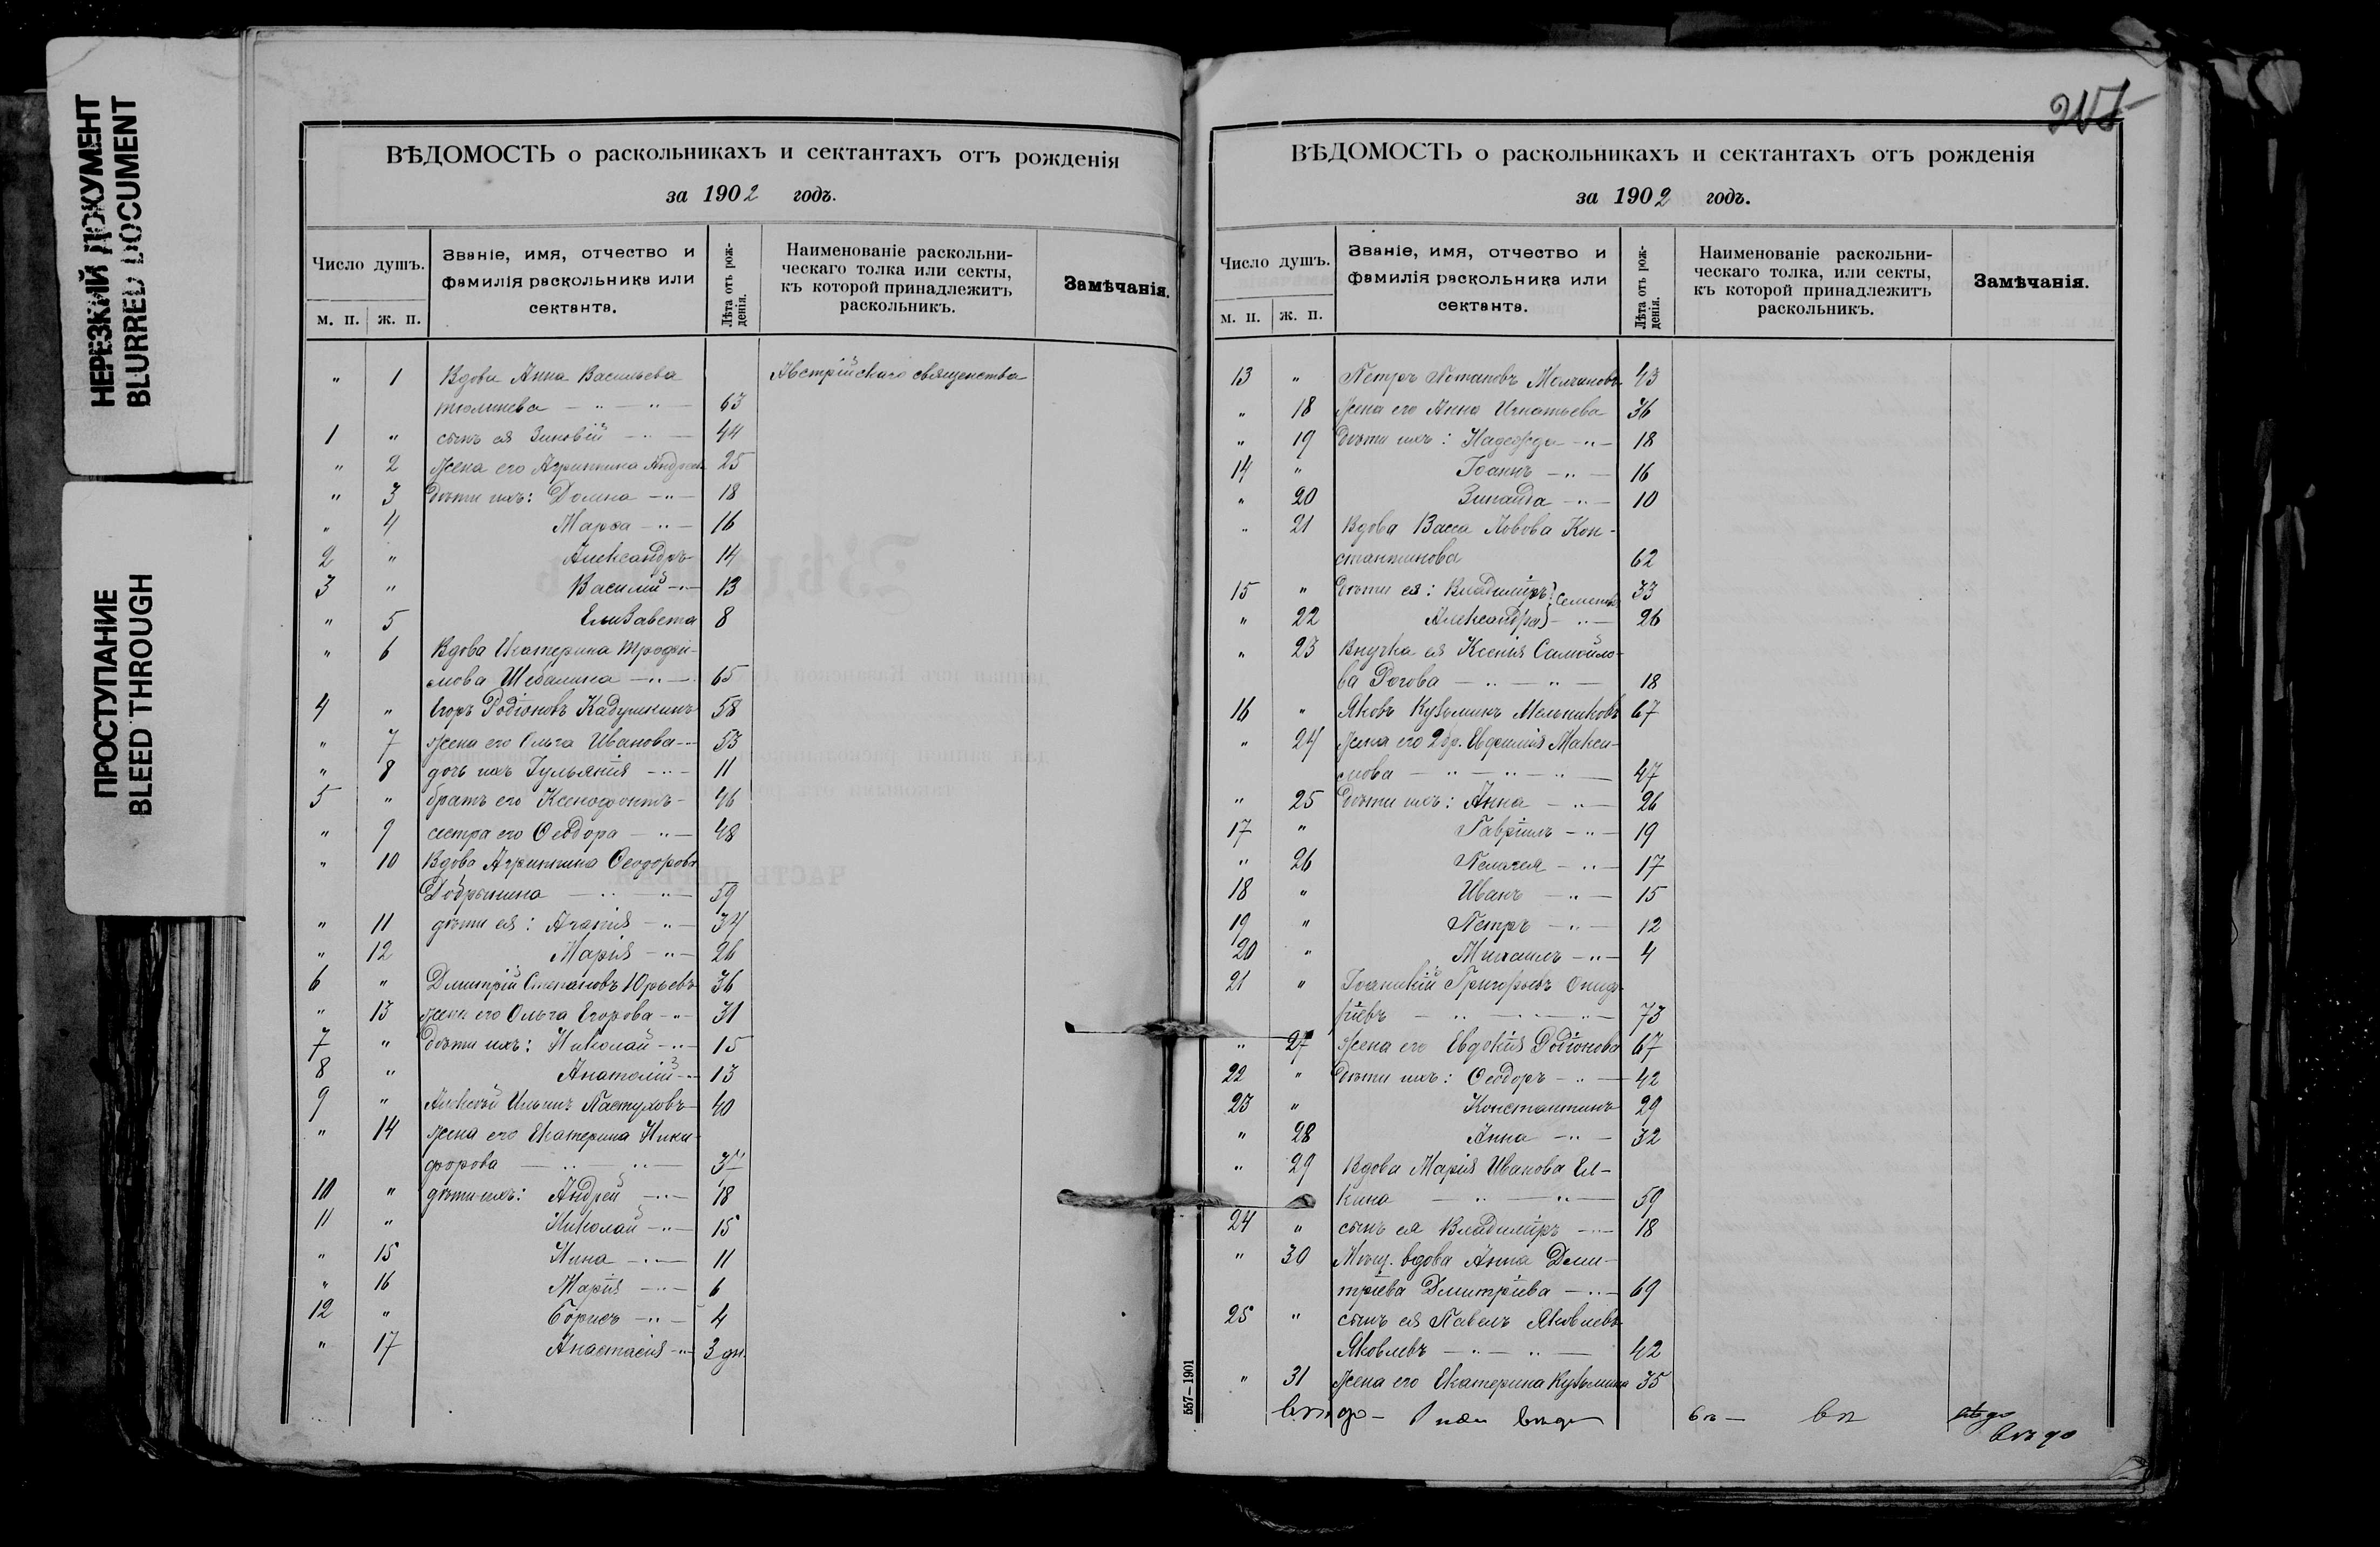 НЕРЕЗКИЙ ДОКУМЕНТ
BLURRED DOCUMENT
ПРОСТУПАНИЕ
BLEED THROUGH
ВѢДОМОСТЬ о раскольникахъ и сектантахъ отъ рожденія
за 1902 годъ.
Число душъ.
м. п. ж. п.
Званіе, имя, отчество и
фамилія раскольника или
сектанта.
Лѣта отъ рож-
денія.
Наименованіе раскольни-
ческаго толка или секты,
къ которой принадлежитъ
раскольникъ.
Замѣчанія.
" 1 Вдова Анна Васильева Австрійскаго священства
— " — " — 63
1 " сынъ ея Зиновій — " — 44
" 2 Жена его Агриппина 25
" 3 Дѣти ихъ: Домна — " — 18
" 4 Марѳа — " — 16
2 " Александръ 14
3 " Василій — " — 13
" 5 Елизавета 8
" 6 Вдова Екатерина Трофи-
мова Шебалина — " — 65
4 " Егоръ Родіоновъ Кадушкинъ 58
" 7 Жена его Ольга Иванова — " — 53
" 8 дочь ихъ Іульянія — " — 11
5 " братъ его Ксенофонтъ — 46
" 9 сестра его Ѳеодора — " — 48
" 10 Вдова Агриппина Ѳеодорова
Добрынина — " — " — 59
" 11 дѣти ея: Агапія — " — 34
" 12 Марія — " — 26
6 " Дмитрій Степановъ Юрьевъ 36
" 13 жена его Ольга Егорова — " — 31
7 " Дѣти ихъ: Николай — " — 15
8 " Анатолій — " — 13
9 " Алексѣй Ильинъ Пастуховъ 40
" 14 жена его Екатерина Ники-
форова — " — " —
10 " дѣти ихъ: Андрей — " — 18
11 " Николай — " — 15
" 15 Нина — " — 11
" 16 Марія — " — 6
12 " Борисъ — " — 4
" 17 Анастасія — " — 3 дн.
ВѢДОМОСТЬ о раскольникахъ и сектантахъ отъ рожденія
за 1902 годъ.
Число душъ.
м. п. ж. п.
Званіе, имя, отчество и
фамилія раскольника или
сектанта.
Лѣта отъ рож-
денія.
Наименованіе раскольни-
ческаго толка, или секты,
къ которой принадлежитъ
раскольникъ.
Замѣчанія.
13 " Петръ Потаповъ Молчановъ 43
" 18 Жена его Анна Игнатьева 36
" 19 Дѣти ихъ: Надежда — " — 18
14 " Іоаннъ — " — 16
" 20 Зинаида — " — 10
" 21 Вдова Васса Львова Кон-
стантинова 62
15 " Дѣти ея: Владиміръ } Семеновы 33
" 22 Александра } — " — 26
" 23 Внучка ея Ксенія Самойло-
ва Рогова — " — " — 18
16 " Яковъ Кузьминъ Мельниковъ 67
" 24 Жена его 2 бр. Евфимія Макси-
мова — " — " — " — 47
" 25 Дѣти ихъ: Анна — " — 26
17 " Гавріилъ — " — 19
" 26 Пелагея — " — 17
18 " Иванъ — " — 15
19 " Петръ — " — 12
20 " Михаилъ — " — 4
21 " Іоаникій Григорьевъ
— " — " — 73
" 27 Жена его Евдокія Родіонова 67
22 " Дѣти ихъ: Ѳеодоръ — " — 42
23 " Константинъ 29
" 28 Анна — " — 32
" 29 Вдова Марія Иванова Ел-
кина — " — " — 59
24 " сынъ ея Владиміръ — " — 18
" 30 Мѣщ. вдова Анна Дми-
тріева Дмитріева — " — 69
25 " сынъ ея Павелъ Яковлевъ
Яковлевъ — " — " — 42
" 31 Жена его Екатерина Кузьмина 35
557—1901